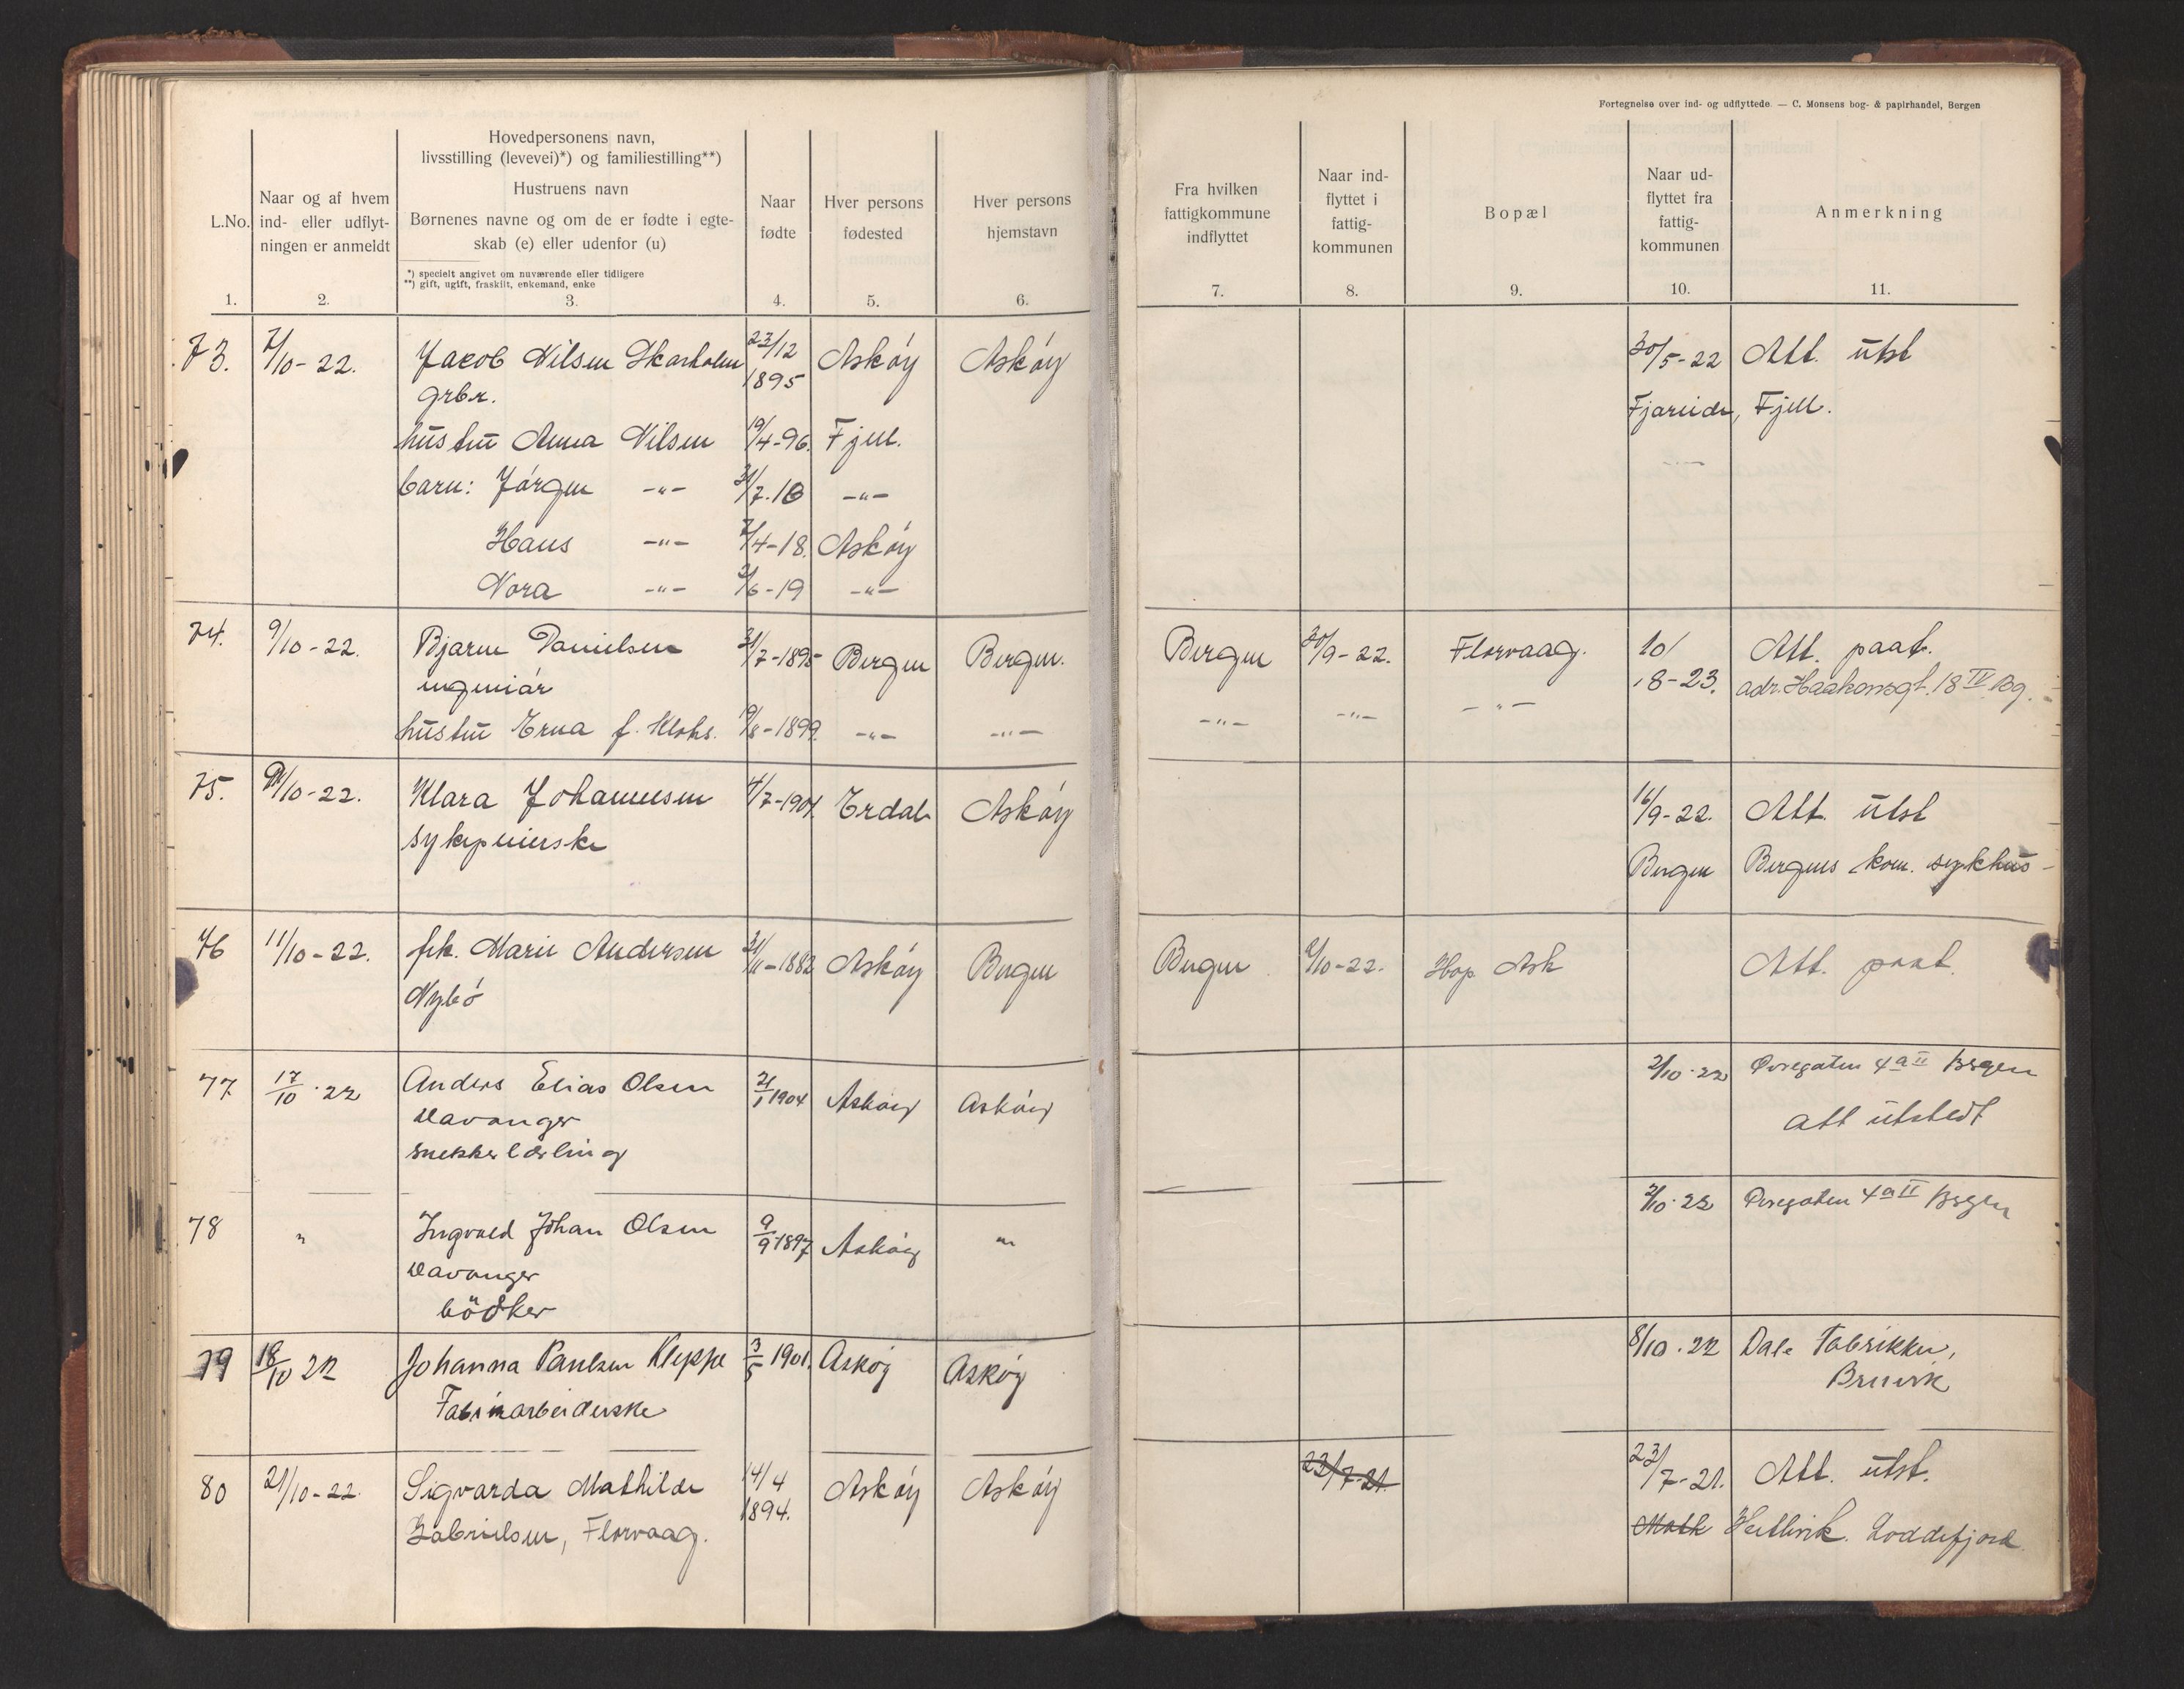 Fortegnelse over ind- og udflyttede — C. Monsens bog- & papirhandel, Bergen
L.No.
1.
Naar og af hvem
ind- eller udflyt-
ningen er anmeldt
2.
Hovedpersonens navn,
livsstilling (levevei)*) og familiestilling**)
Hustruens navn
Børnenes navne og om de er fødte i egte-
skab (e) eller udenfor (u)
*) specielt angivet om nuværende eller tidligere
**) gift, ugift, fraskilt, enkemand, enke
3.
Naar
fødte
4.
Hver persons
fødested
5.
Hver persons
hjemstavn
6.
Fra hvilken
fattigkommune
indflyttet
7.
Naar ind-
flyttet i
fattig-
kommunen
8.
Bopæl
9.
Naar ud-
flyttet fra
fattig-
kommunen
10.
Anmerkning
11.
73. 7/10-22. Jacob Nilsen Skarholm 23/12 1895 Askøy Askøy 30/5-22 Att. utst
grbr. Fjell.
hustru Anna Nilsen 19/4-96. Fjell.
barn: Jørgen -"- 31/7-16 -"-
Hans -"- 7/4-18. Askøy
Nora -"- 2/6-19 -"-
74. 9/10-22. Bjarne Danielsen 31/7-1895 Bergen Bergen. Bergen 30/9-22. Florvaag. 10/8-23. Att. paat.
ingeniør adr. Haakonsgt. 18 IV Bg.
hustru Erna f. Klohs. 19/8-1899. -"- -"- -"- -"- -"-
75. /10-22. Klara Johannesen 4/7-1901. Erdal Askøy 16/9-22. Att. utst
sykepleierske Bergen Bergens kom. sykehus
76 11/10-22. frk. Marie Andersen 21/11-1882 Askøy Bergen Bergen 2/10-22. Hop Ask Att. paat.
Nybø
77 17/10-22 Anders Elias Olsen 21/1 1904 Askøy Askøy 2/10-22 4 a II Bergen
Davanger att utstedt
snekkerlærling
78 " Ingvald Johan Olsen 9/9 1897 Askøy " 2/10-22 4 a II Bergen
Davanger
bødker
79 18/10 22 Johanna Paulsen Kleppe 3/5 1901. Askøy Askøy 8/10-22 Dale Fabrikker,
Fabrikarbeiderske Bruvik
80 21/10-22. Sigvarda Mathilde 14/4 1894. Askøy Askøy 23/7-21. 23/7-21. Att. utst.
Gabrielsen, Florvaag. Math Hetlevik. Loddefjord